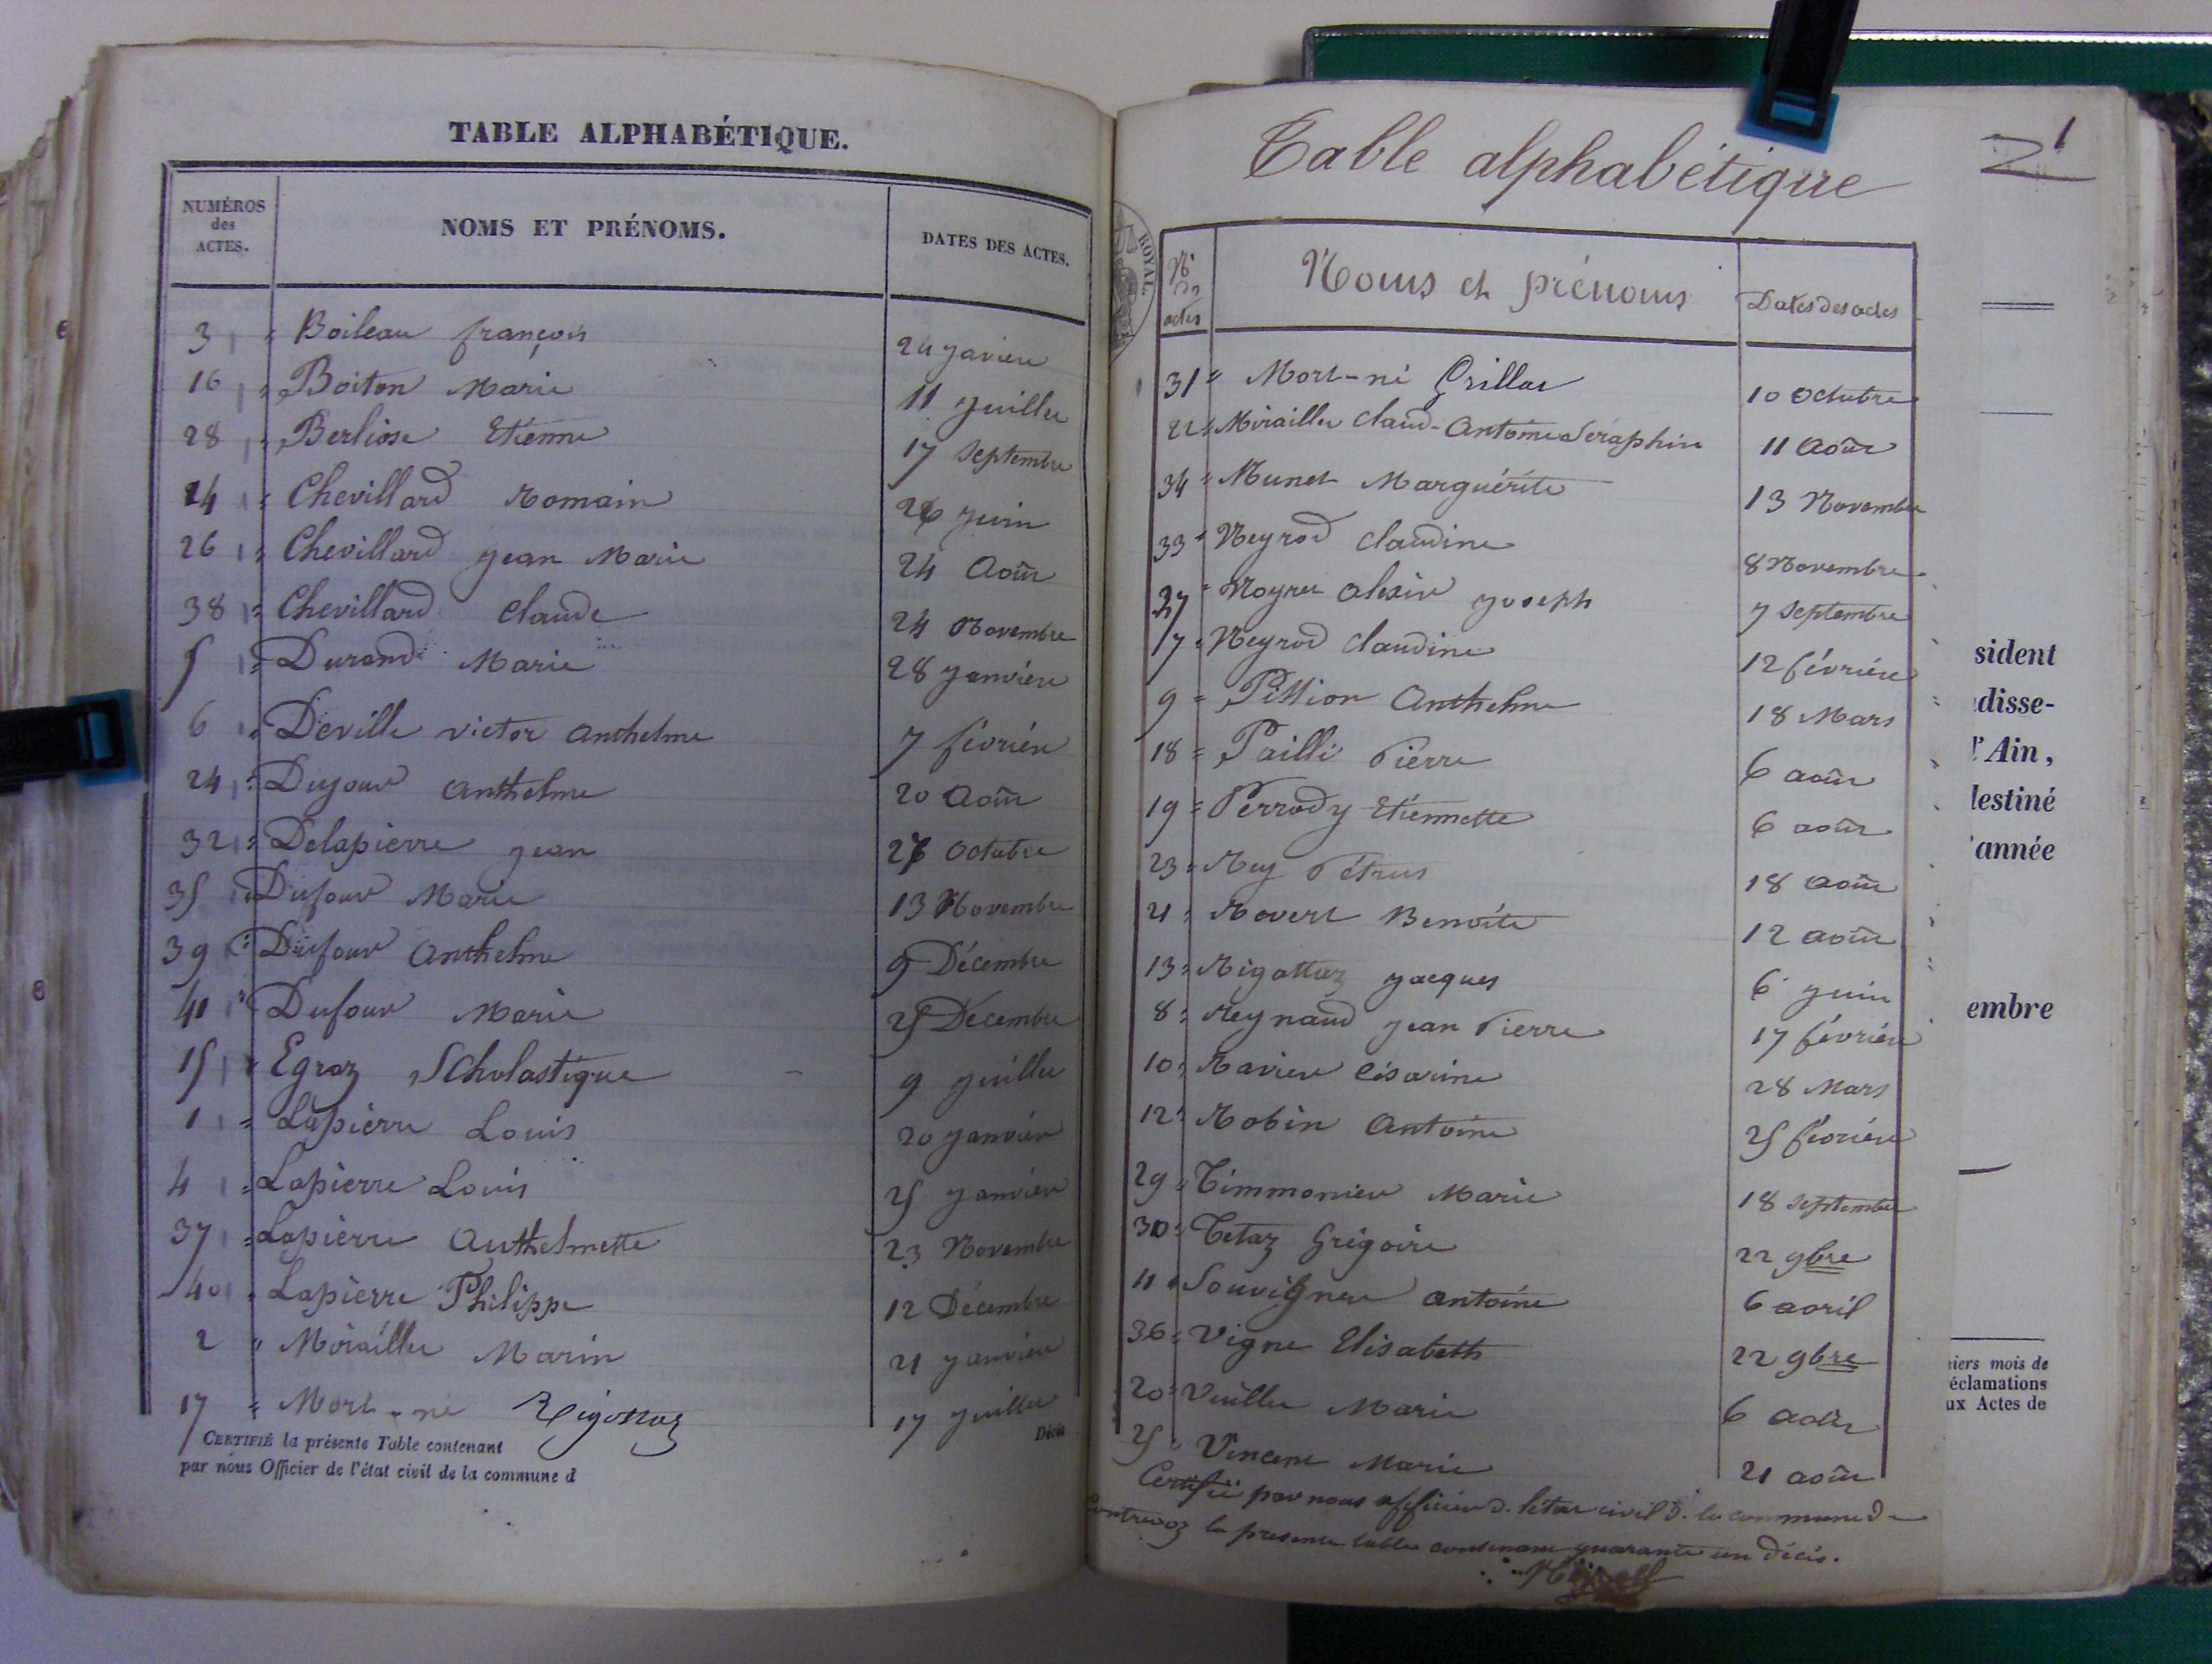 TABLE ALPHABÉTIQUE.
NUMÉROS des ACTES. NOMS ET PRÉNOMS. DATES DES ACTES.
3 " Boileau françois 24 javier
16 " Boiton Marie 11 juillet
28 " Berliose Etienne 17 Septembre
14 " Chevillard Romain 26 juin
26 " Chevillard jean Marie 24 Août
38 " Chevillard Claude 24 Novembre
5 " Durand Marie 28 janvier
6 " Deville victor anthelme 7 février
24 " Dujour anthelme 20 Août
32 " Delapierre jean 27 Octobre
35 " Dufour Marie 13 Novembre
39 " Dufour Anthelme 9 Décembre
41 " Dufour Marie 25 Décembre
15 " Egraz Scholastique 9 juillet
1 " Lapierre Louis 20 janvier
4 " Lapierre Louis 25 janvier
37 " Lapierre Anthelmette 23 Novembre
40 " Lapierre Philippe 12 Décembre
2 " Miraillet Marin 21 janvier
17 " Mort-né Rigottaz 17 juillet
Décès
CERTIFIÉ la présente Table contenant
par nous Officier de l'état civil de la commune d
ROYAL.
Table alphabétique
Nos des actes Noms et prénoms Dates des actes
31 " Mort-né Grillat 10 Octobre
22 " Miraillet Claud-Antoine Séraphin 11 Août
34 " Munet Marguérite 13 Novembre
33 " Neyrod Claudine 8 Novembre
27 " Noyret alexis joseph 7 septembre
7 " Neyrod Claudine 12 février
9 " Pittion Anthelme 18 Mars
18 " Pailli Pierre 6 août
19 " Perrody Etiennette 6 août
23 " Rey Pétrus 18 août
21 " Rovert Benoite 12 août
13 " Rigottaz jacques 6 juin
8 " Reynaud jean Pierre 17 février
10 " Ravier Césarine 28 Mars
12 " Robin Antoine 25 février
29 " Timmonier Marie 18 septembre
30 " Tetaz Grégoire 22 9bre
11 " Souvignet antoine 6 avril
36 " Vigne Elisabeth 22 9bre
20 " Vuillet Marie 6 août
25 " Vincent Marie 21 août
Certifié par nous officier de l'état civil de la commune de
Contrevoz la présente table contenant quarante un décès.
1
sident
disse-
l'Ain,
lestiné
'année
embre
iers mois de
éclamations
ux Actes de